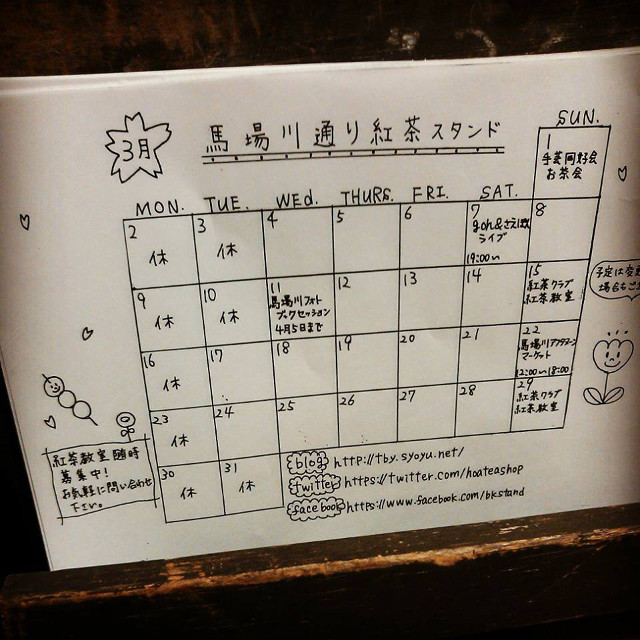 3月
馬場川通り紅茶スタンド
MON. TUE. WEd. THURS. FRI. SAT. SUN.
1
手芸同好会
お茶会
2
休
3
休
4
5
6
7
goh&さえぽん
ライブ
19:00〜
8
9
休
10
休
11
馬場川フォト
ブックセッション
4月5日まで
12
13
14
15
紅茶クラブ
紅茶教室
16
休
17
18
19
20
21
22
馬場川アフタヌーン
マーケット
12:00〜18:00
23
休
24
25
26
27
28
29
紅茶クラブ
紅茶教室
30
休
31
休
予定は変更
場合もござ
紅茶教室随時
募集中!
お気軽に問い合わせ
下さい。
blog http://tby.syoyu.net/
twitter https://twitter.com/hoateashop
facebook https://www.facebook.com/bkstand